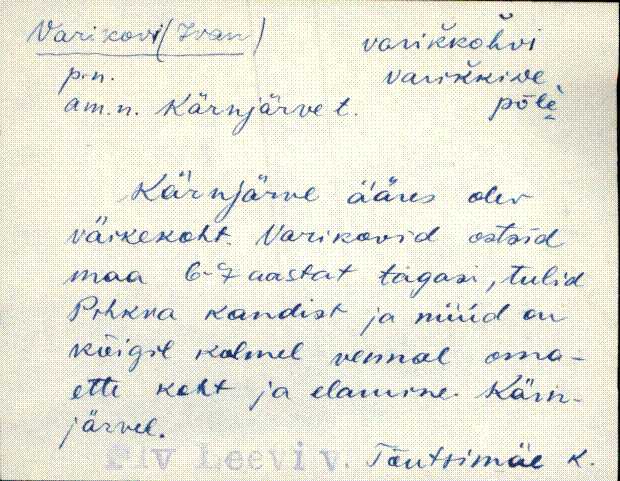 Varikovi (Ivan)
varikkohvi
p.n.
varikkive
am.n. Kärnjärve t.
põle
Kärnjärve ääres olev
väikekoht. Varikovid ostsid
maa 6-7 aastat tagasi, tulid
Pihkva kandist ja nüüd on
kõigil kolmel vennal oma-
ette koht ja elamine Kärn-
järvel.
Plv Leevi v. Tõutsimäe k.